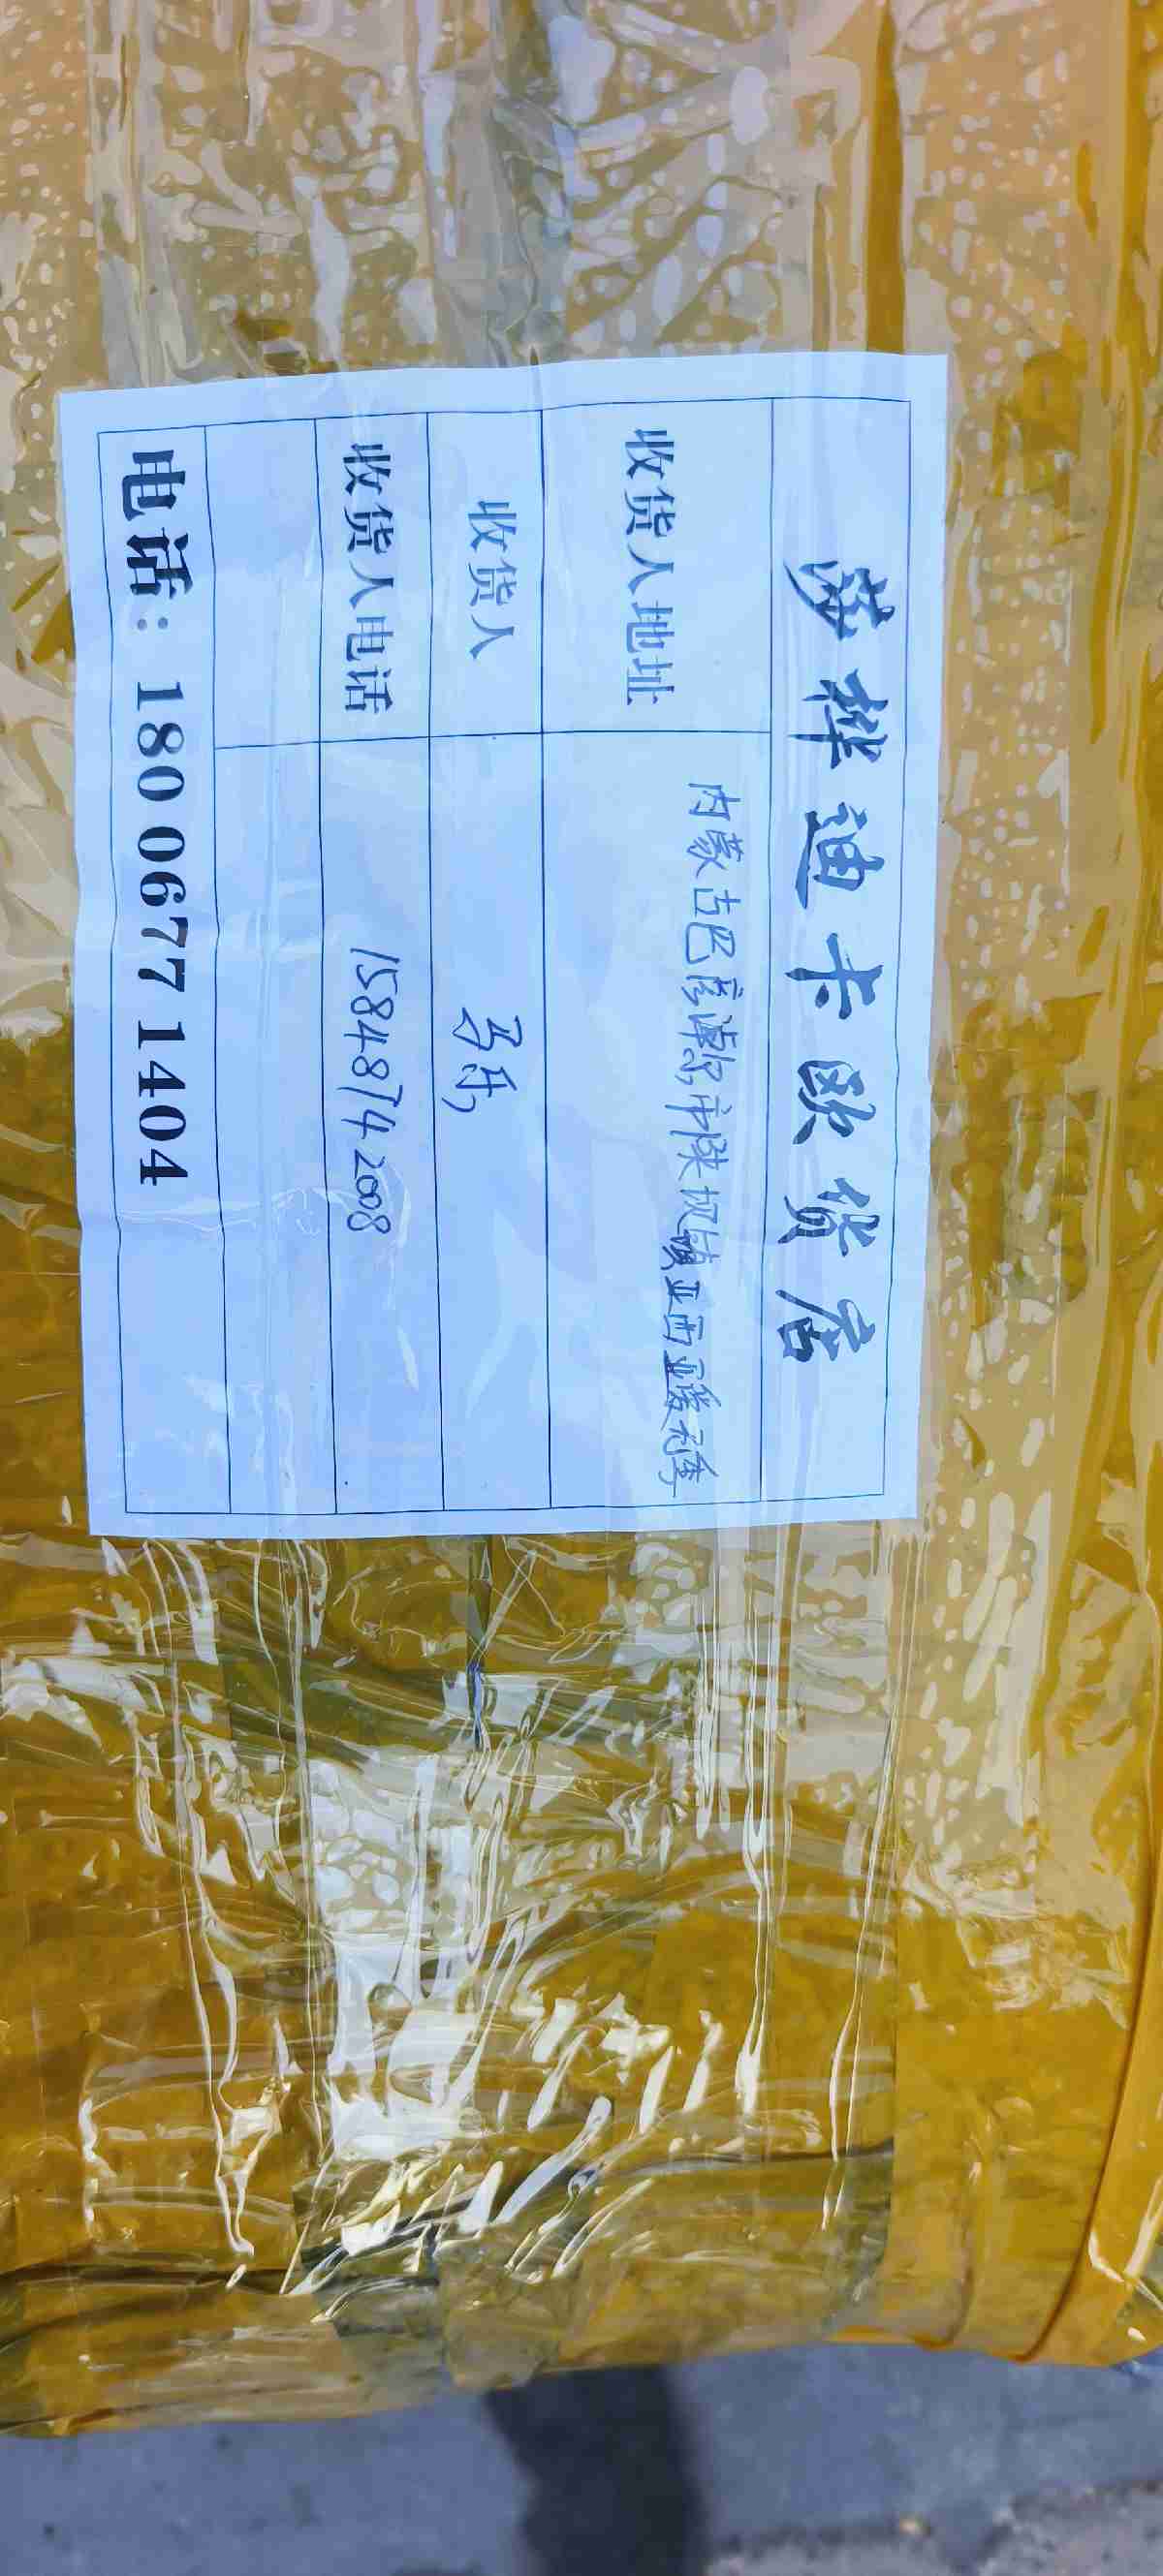 莎桦迪卡欧货店
收货人地址 内蒙古巴彦淖尔市陕坝镇亚西亚
收货人
收货人电话 15848742008
电话：180 0677 1404